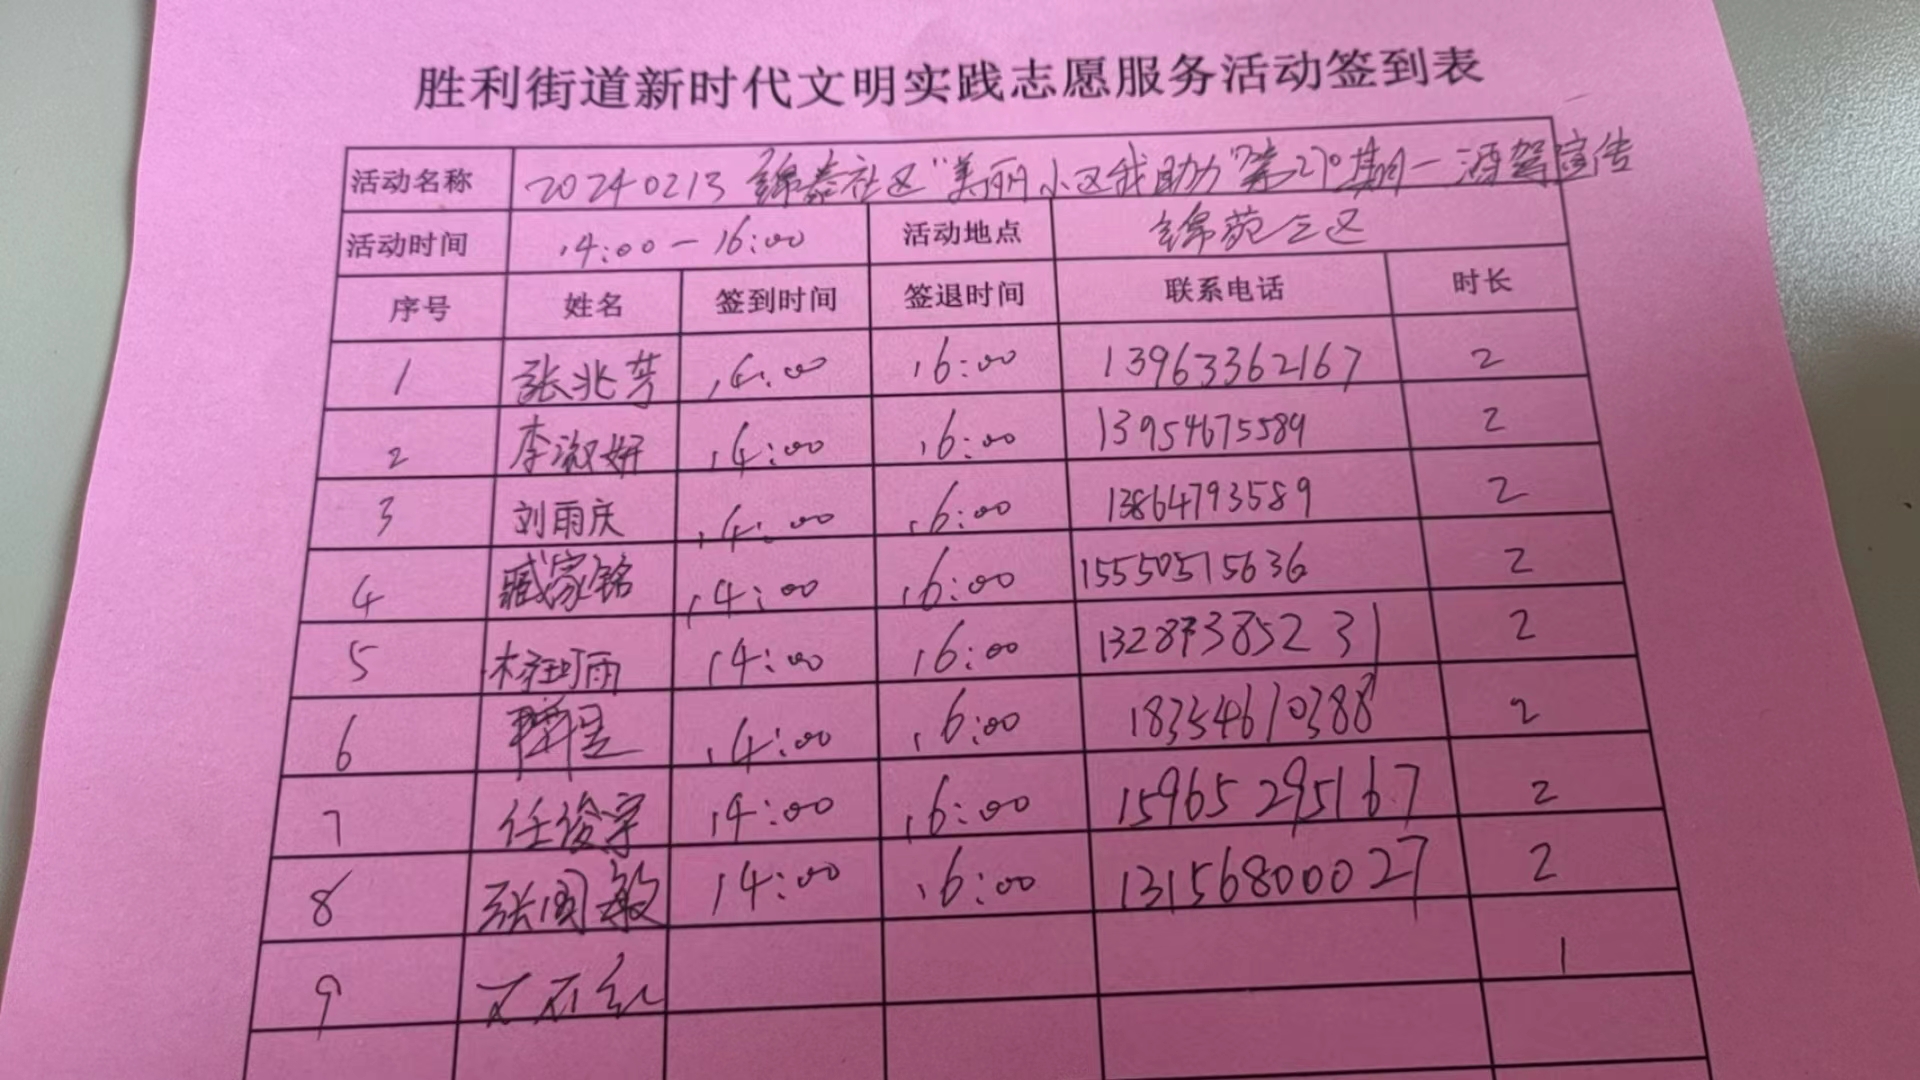 胜利街道新时代文明实践志愿服务活动签到表
活动名称 20240213 锦泰社区"美丽小区我助力"第270期—酒驾宣传
活动时间 14:00—16:00 活动地点 锦苑三区
序号 姓名 签到时间 签退时间 联系电话 时长
1 张兆芳 14:00 16:00 13963362167 2
2 李淑妍 14:00 16:00 13954675589 2
3 刘雨庆 14:00 16:00 13864793589 2
4 臧家铭 14:00 16:00 15550515636 2
5 14:00 16:00 13287385231 2
6 14:00 16:00 18354610388 2
7 任俊宇 14:00 16:00 15965295167 2
8 张国敏 14:00 16:00 13156800027 2
9 1